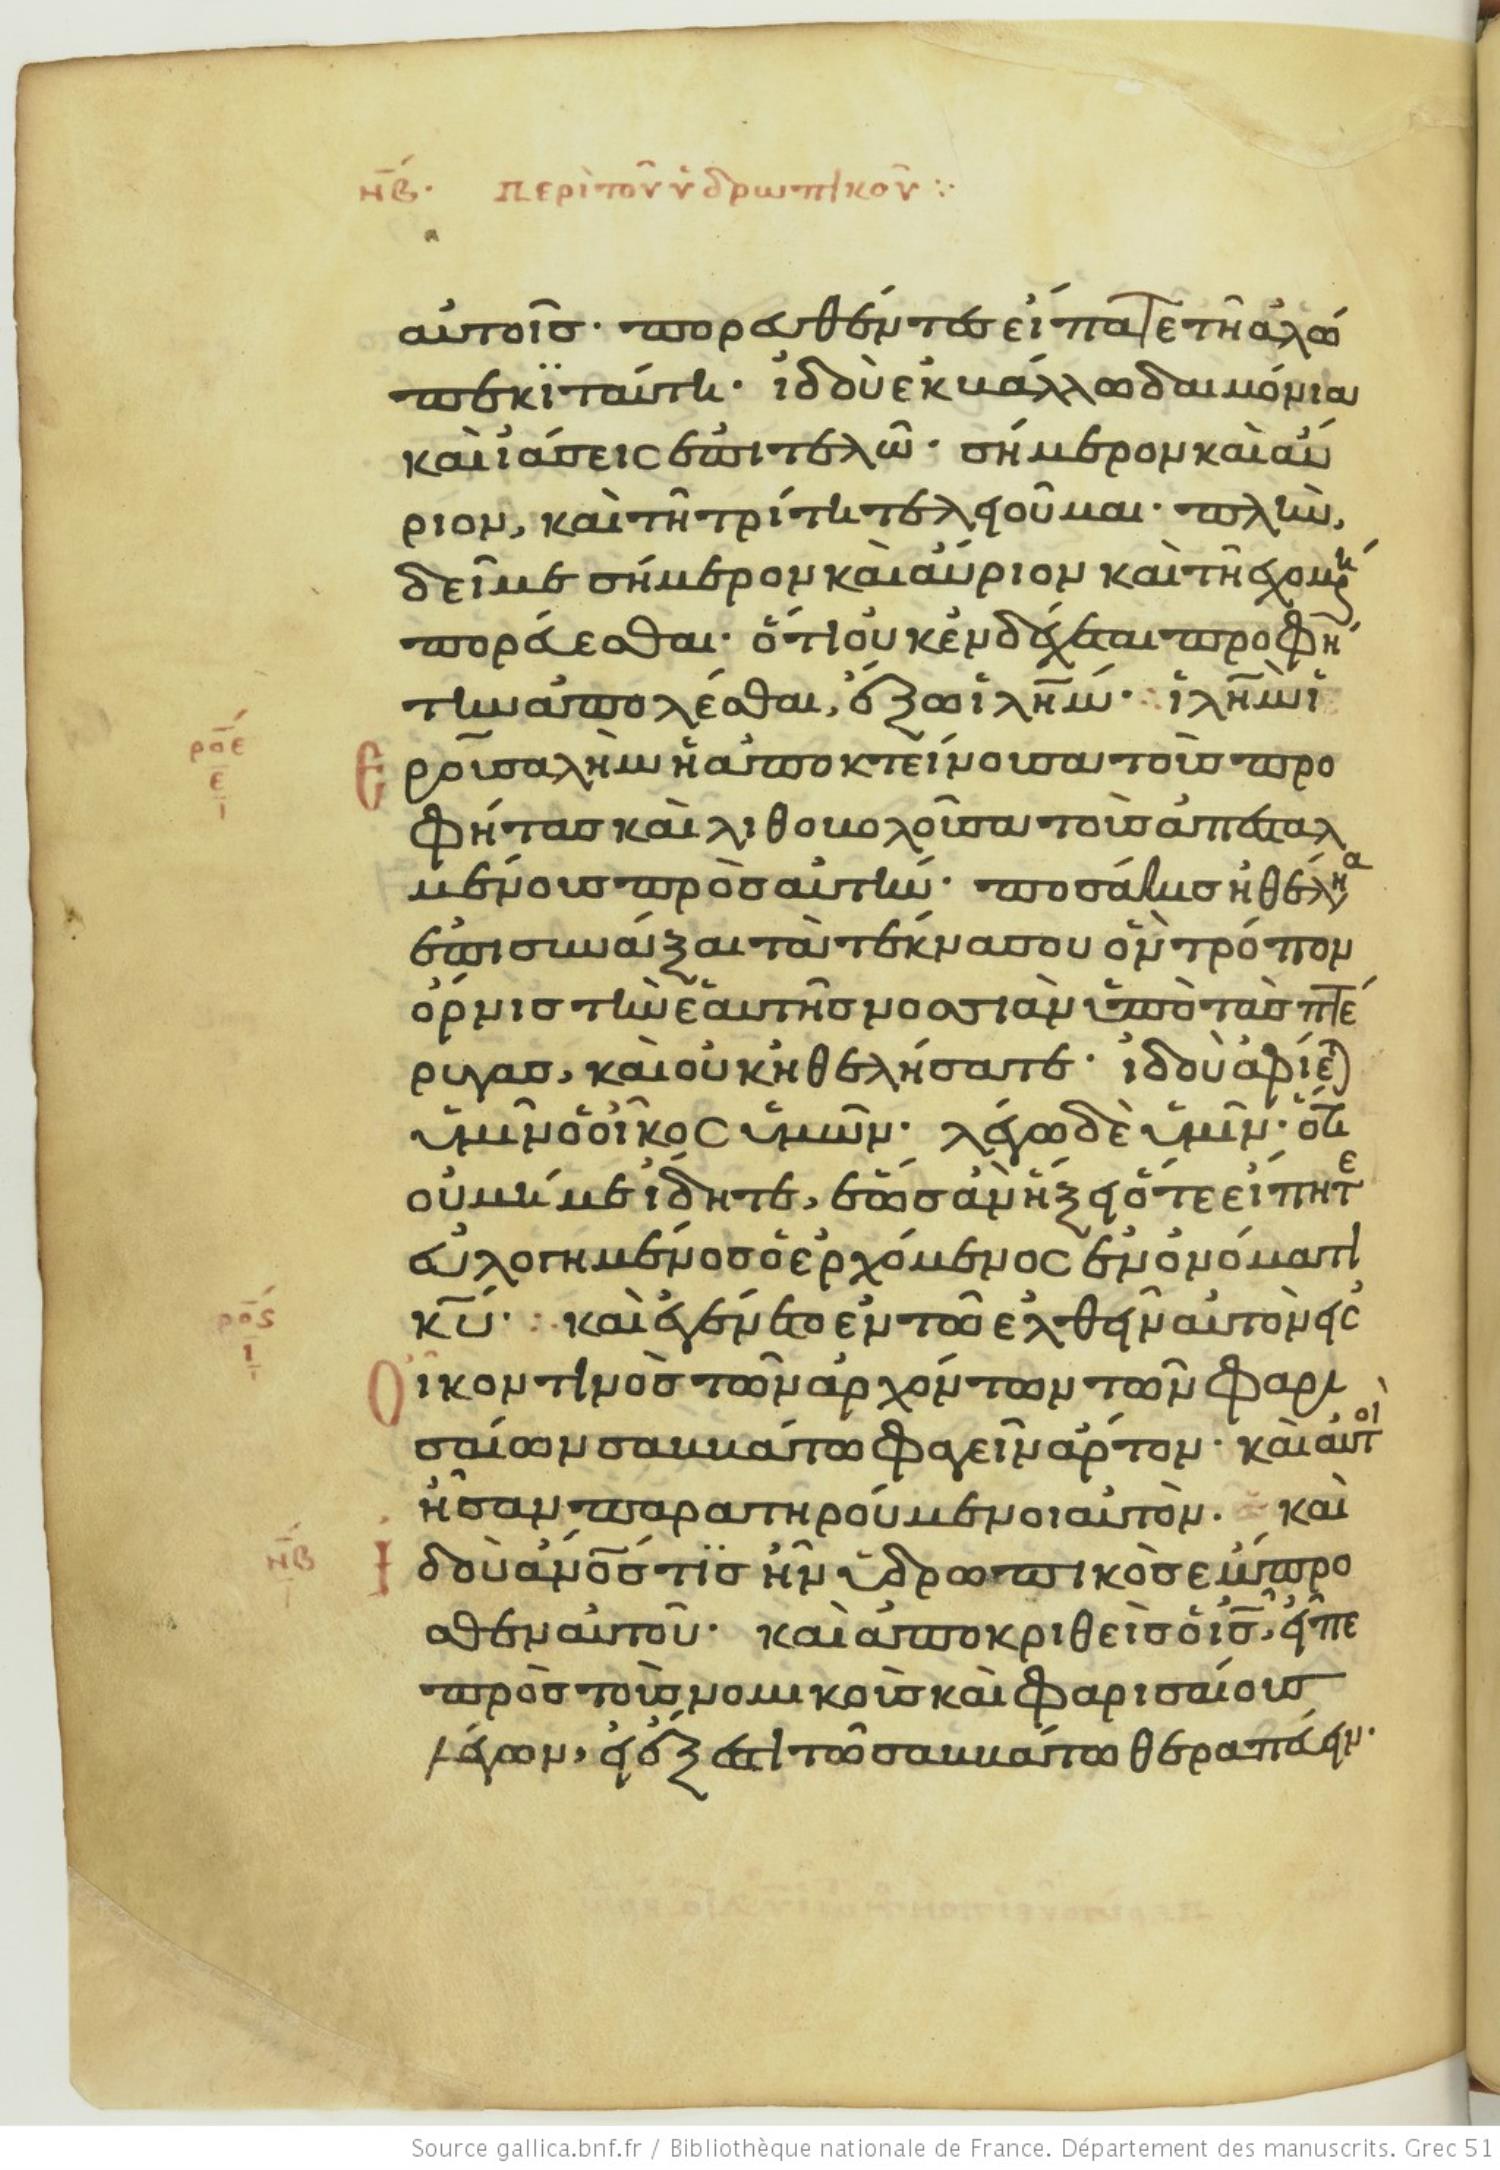 νβ. περὶ τοῦ ὑδρωπικοῦ ⁘
αὐτοῖσ· πορευθέντεσ εἴπατε τῆ ἀλώ
πεκϊ ταύτη· ἰδοὺ ἐκβάλλω δαιμόνια
καὶ ἰάσεις ἐπιτελῶ· σήμερον καὶ αύ
ριον, καὶ τῆ τρίτη τελειοῦμαι· πλὴν,
δεῖ με σήμερον καὶ αύριον καὶ τῆ ἐχομένη
πορεύεσθαι· ὅτι οὐκ ἐνδέχεται προφή
την ἀπολέσθαι, ἔξω ἱλῆμ· ἱλῆμ ἱ
ερουσαλὴμ ἡ ἀποκτείνουσα τοὺσ προ
φήτασ καὶ λιθοβολοῦσα τοὺσ ἀπεσταλ
μένουσ πρὸσ αὐτήν· ποσάκισ ἠθέλησα
ἐπισυνάξαι τὰ τέκνα σου ὃν τρόπον
ὄρνισ τὴν ἑαυτῆσ νοσσιὰν ὑπὸ τὰσ πτέ
ρυγασ, καὶ οὐκ ἠθελήσατε· ἰδοὺ ἀφίεται
ὑμῖν ὁ οἶκος ὑμῶν· λέγω δὲ ὑμῖν· ὅτι
οὐ μή με ἴδητε, ἕωσ ἀν ἥξει ὅτε εἴπητε
εὐλογημένοσ ὁ ἐρχόμενος ἐν ὀνόματι
κυ· καὶ ἐγένετο ἐν τῶ ἐλθεῖν αὐτὸν εἰς
οἶκον τινὸσ τῶν ἀρχόντων τῶν φαρι
σαίων σαββάτω φαγεῖν ἄρτον· καὶ αὐτοὶ
ἦσαν παρατηρούμενοι αὐτὸν. καὶ
ἰδοὺ ἀνόσ τϊσ ἦν ὑδρωπικὸσ ἔμπρο
σθεν αὐτοῦ· καὶ ἀποκριθεὶσ ὁ ισ, εἶπε
πρὸσ τοὺσ νομικοὺσ καὶ φαρισαίουσ
λέγων, εἰ ἔξεστι τῶ σαββάτω θεραπεύειν·
ροε
ε
ι
ροϛ
ι
νβ